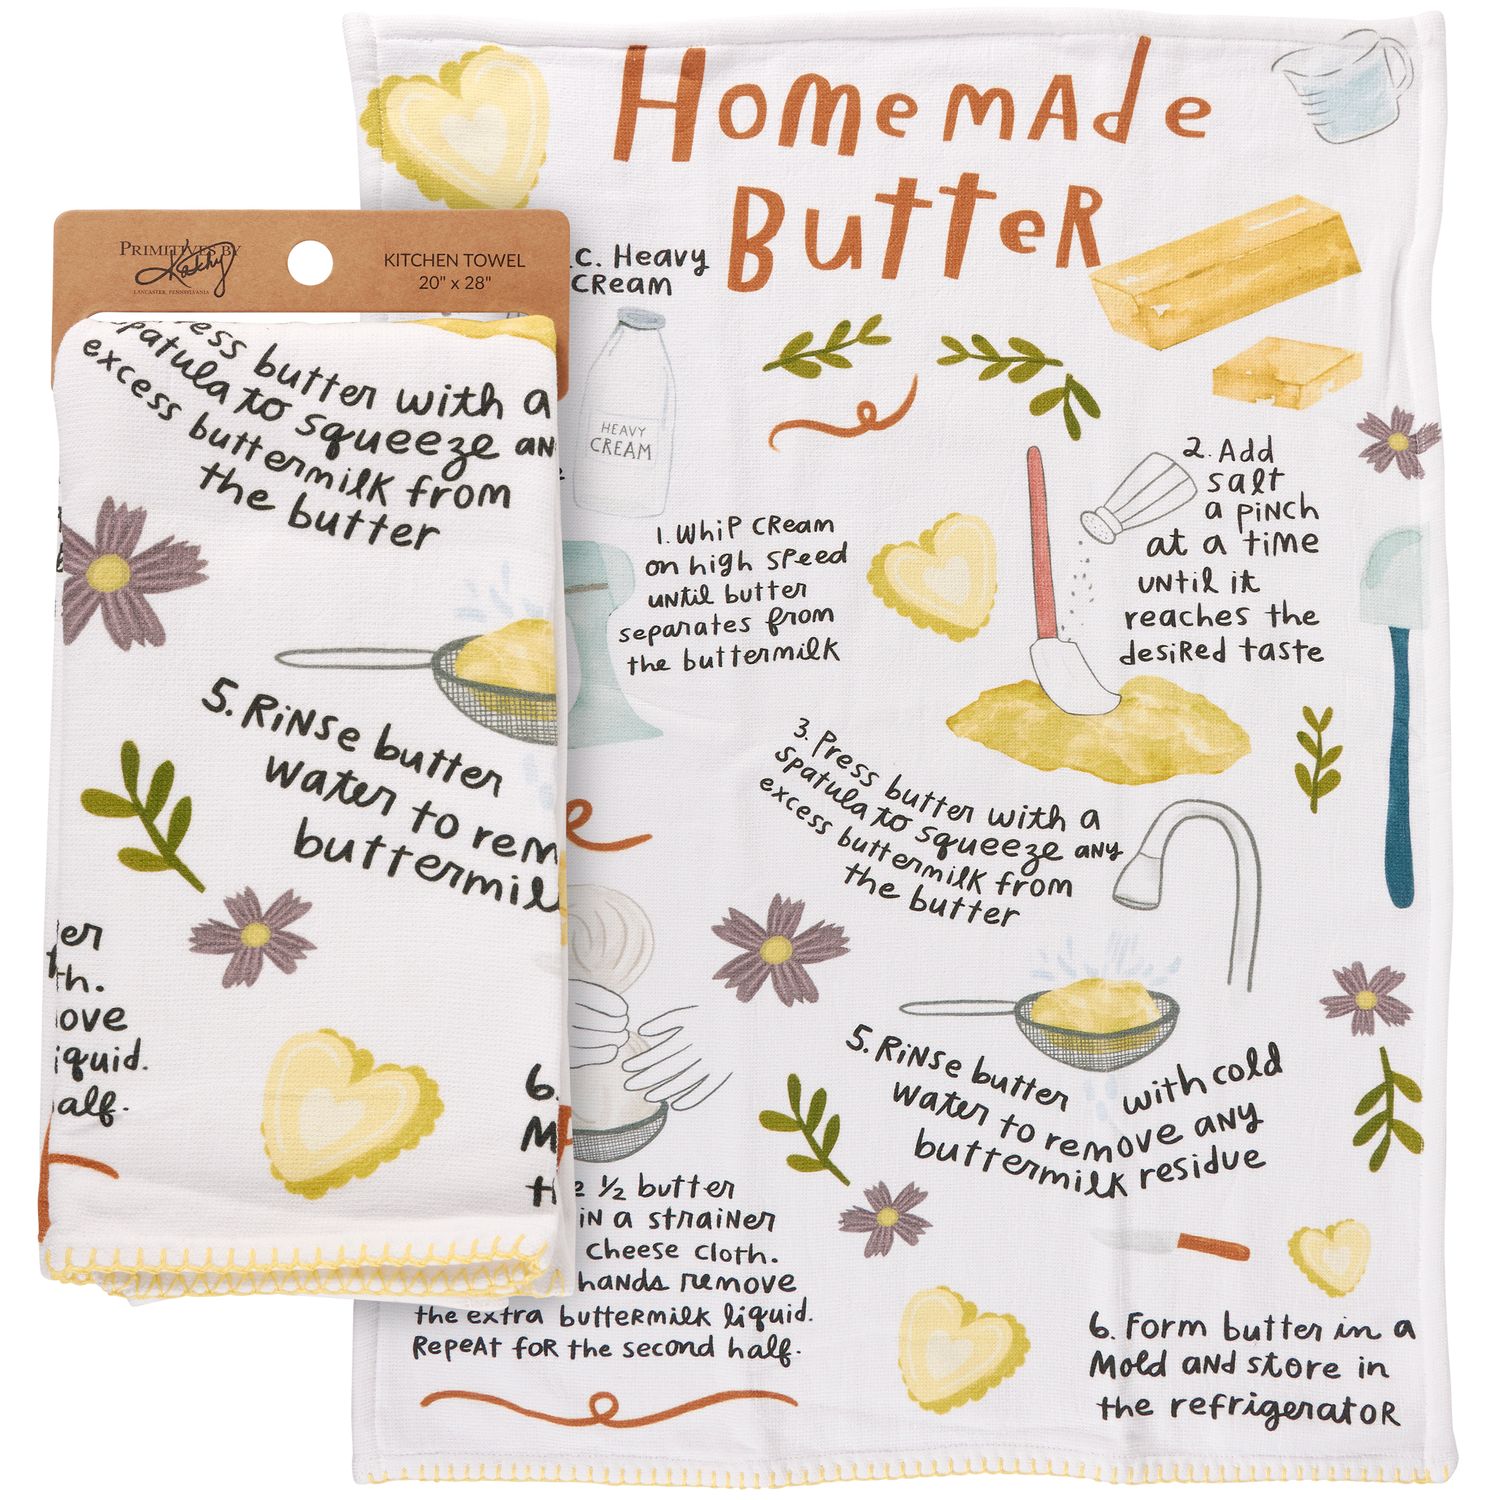 PRIMITIVES BY
Kathy
LANCASTER, PENNSYLVANIA
KITCHEN TOWEL
20" x 28"
ress butter with a
spatula to squeeze an
excess buttermilk from
the butter
5. Rinse butter
water to rem
buttermil
er
th.
ove
iquid.
alf.
6.
M
th
Homemade
Butter
c. Heavy
Cream
HEAVY
CREAM
1. Whip cream
on high speed
until butter
separates from
the buttermilk
2. Add
salt
a pinch
at a time
until it
reaches the
desired taste
3. Press butter with a
spatula to squeeze any
excess buttermilk from
the butter
5. Rinse butter with cold
water to remove any
buttermilk residue
e ½ butter
in a strainer
cheese cloth.
hands remove
the extra buttermilk liquid.
Repeat for the second half.
6. Form butter in a
mold and store in
the refrigerator